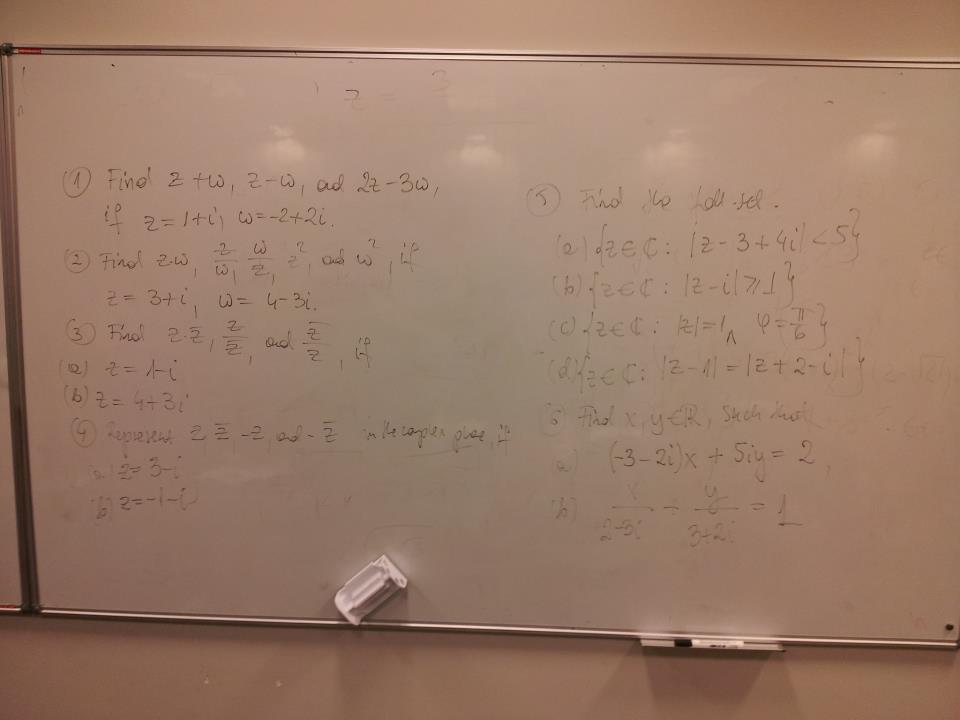 z = 3
① Find z+w, z-w, ad 2z-3w,
if z=1+i, w=-2+2i.
② Find z·w, z/w, w/z, z², ad w², if
z=3+i, w=4-3i.
③ Find z·z̄, z/z̄, ad z̄/z, if
(a) z=1-i
(b) z=4+3i
④ Represent z, z̄, -z, ad -z̄ in the complex plane, if
(a) z=3-i
(b) z=-1-i
⑤ Find the foll. set.
(a) {z∈ℂ: |z-3+4i|<5}
(b) {z∈ℂ: |z-i|⩾1}
(c) {z∈ℂ: |z|=1 ∧ φ=π/6}
(d) {z∈ℂ: |z-1|=|z+2-i|}
⑥ Find x, y∈ℝ, such that
(a) (-3-2i)x + 5iy = 2,
(b) x/(2-3i) + y/(3+2i) = 1